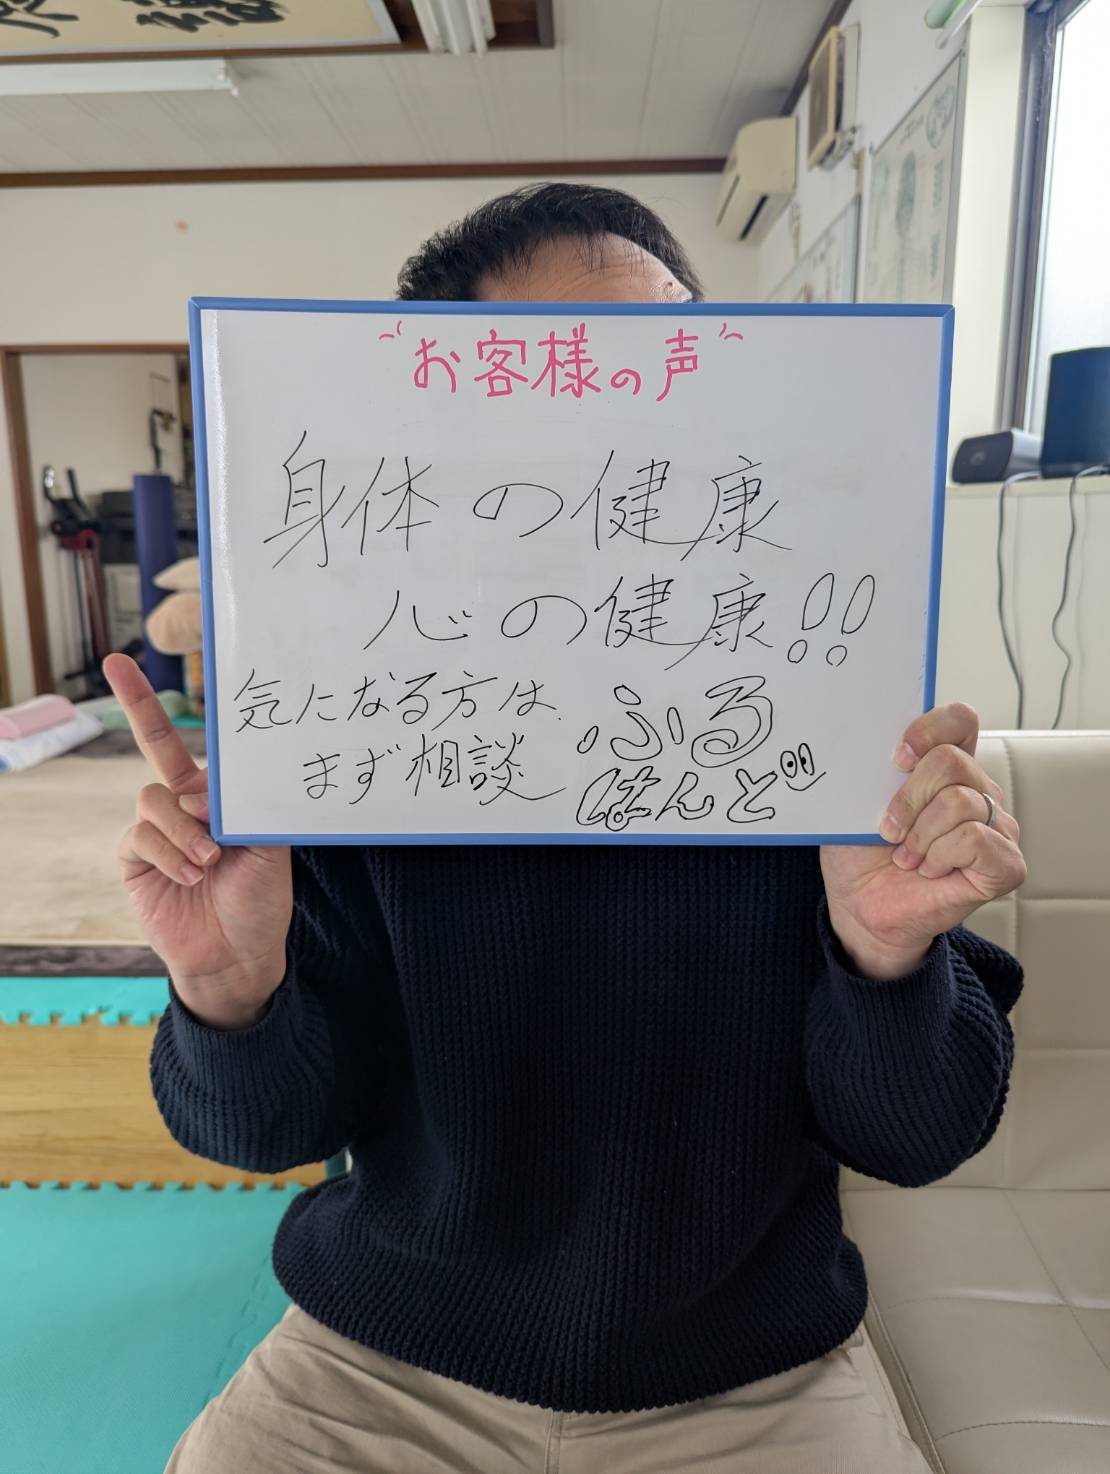 お客様の声
身体の健康
心の健康!!
気になる方は
まず相談
ふる
はんど